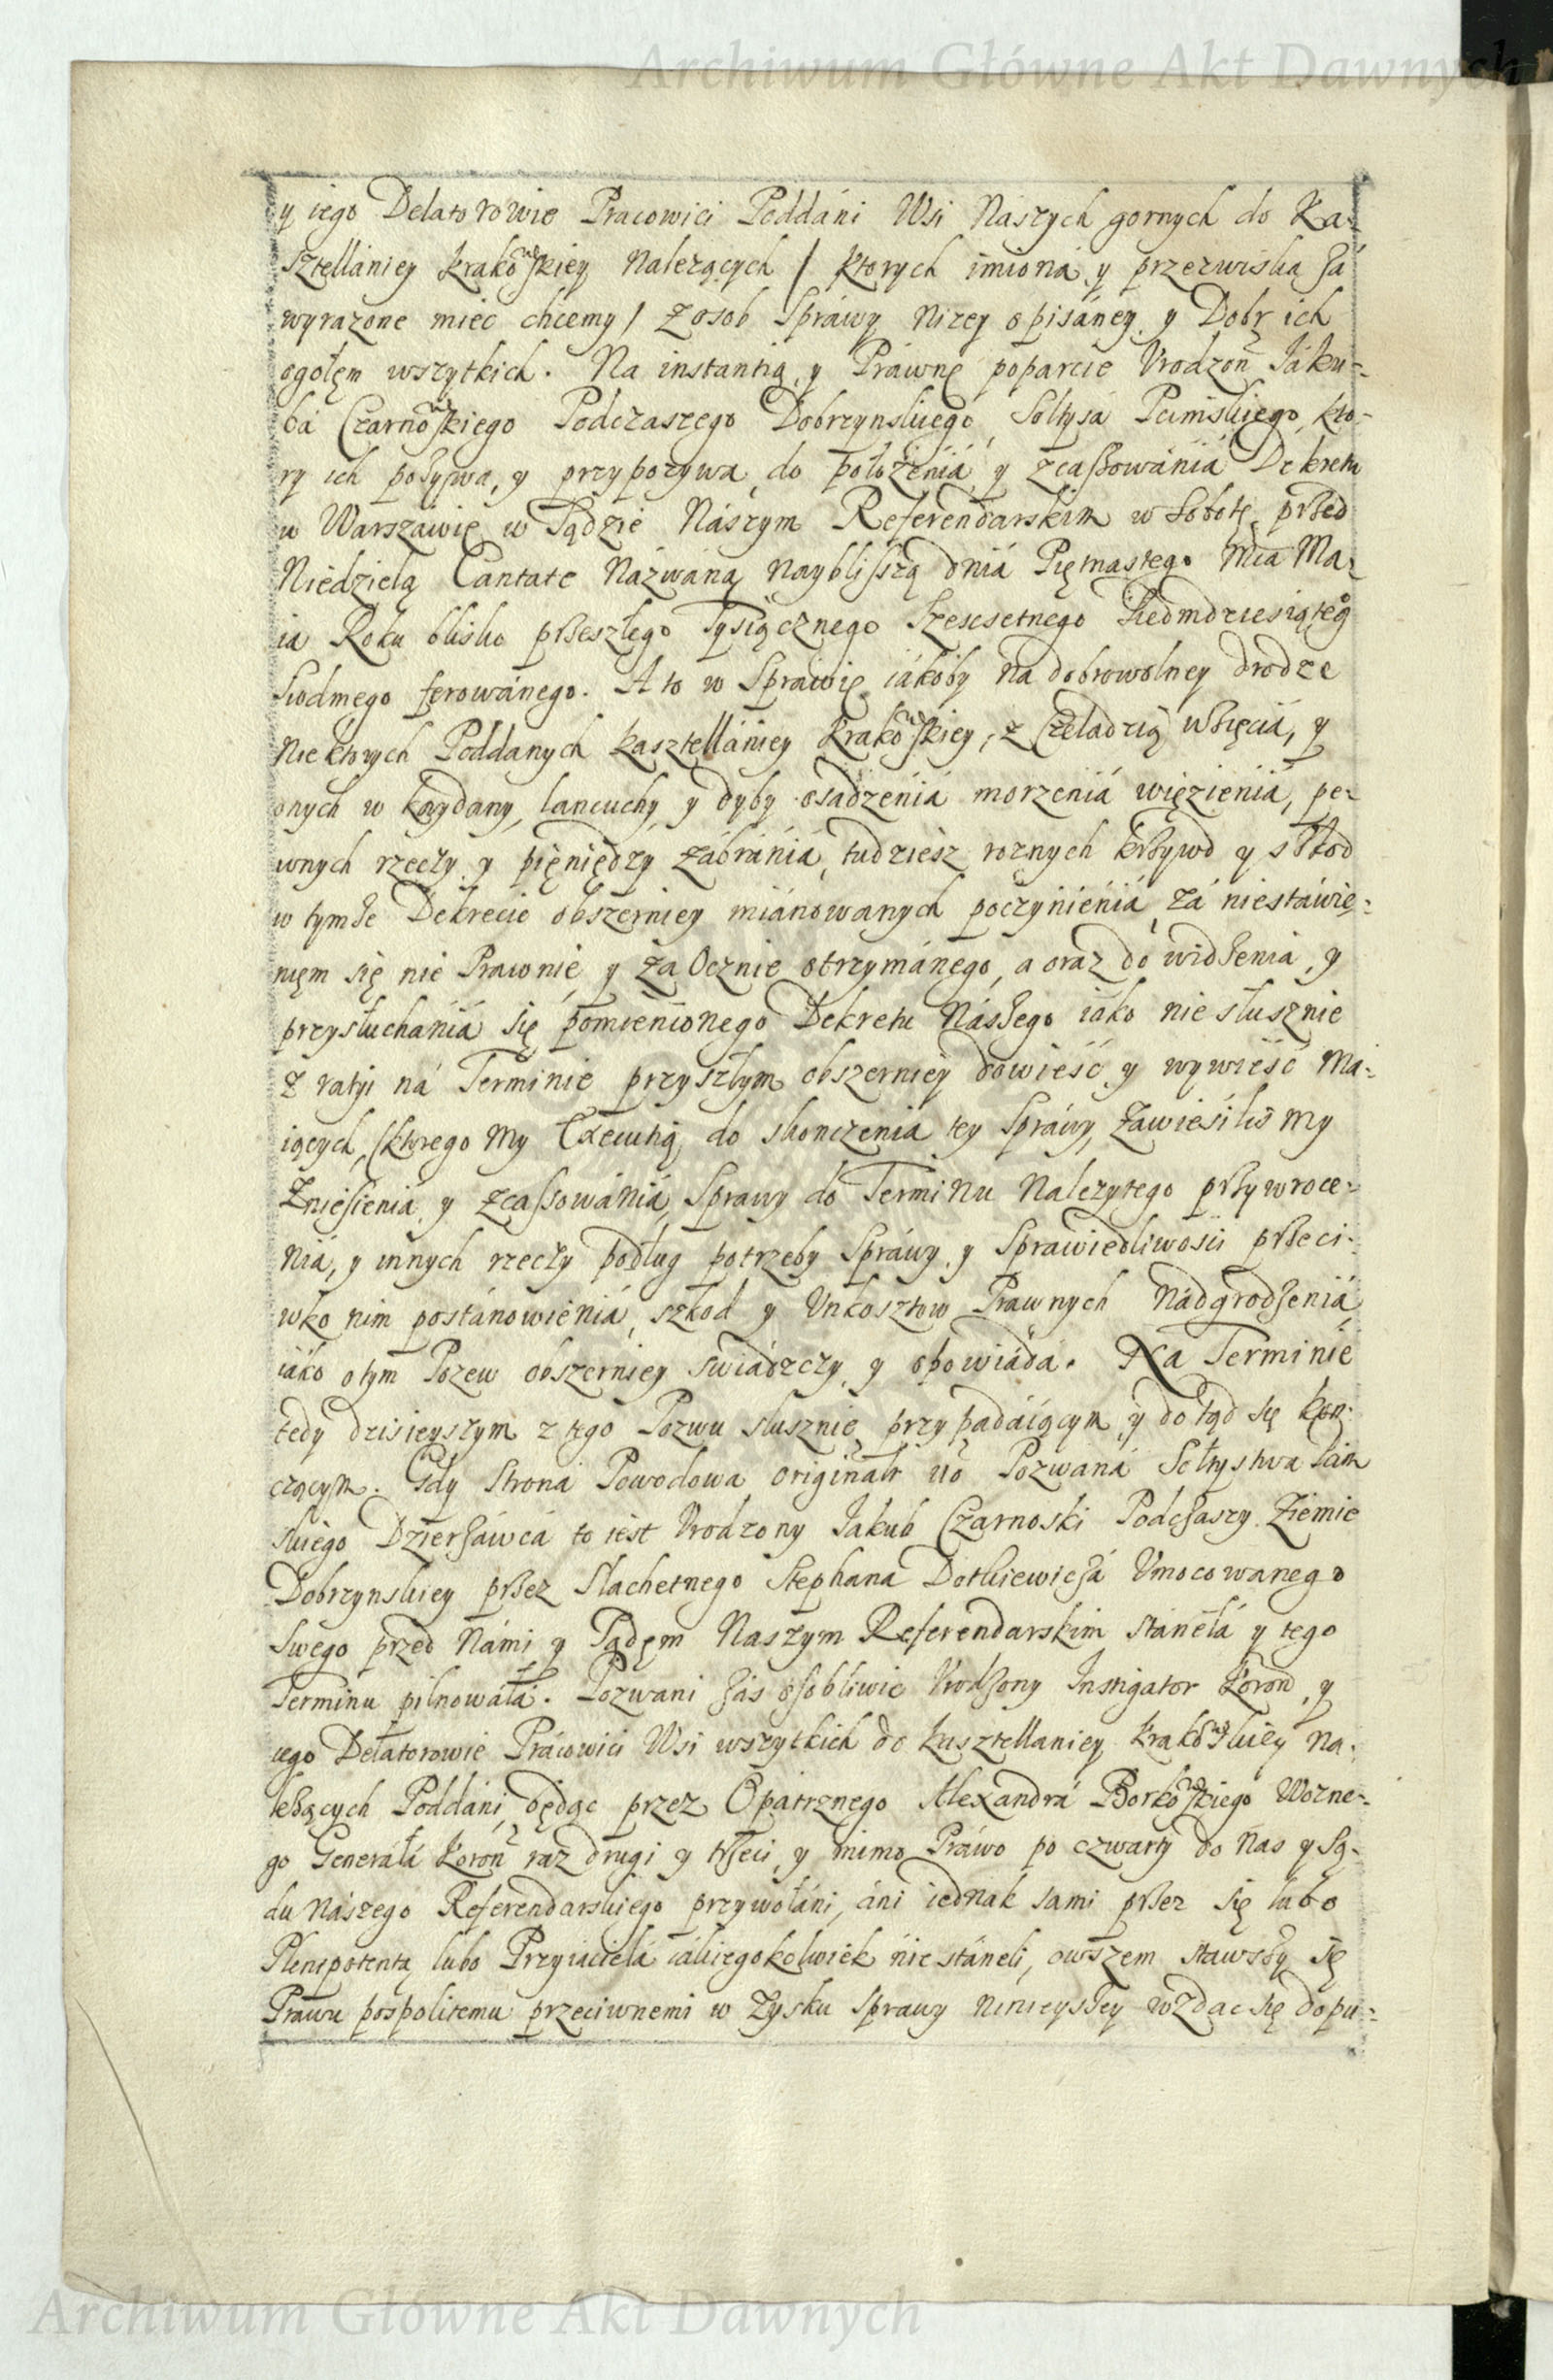 Archiwum Główne Akt Dawnych
y iego Delatorowie Pracowici Poddáni Wsi Nászych gornych do Ka-
sztellániey Krakowskiey Nalezących / ktorych imiona y przezwiska zá
wyrazone miec chcemy / z osob Spráwy nizey opisáney y Dobr ich
ogołęm wszytkich. Na instantią y Práwnę poparcie Vrodzoñ Jáku-
bá Czarnowskiego Podczaszego Dobrzynskiego, Sołtysá kto-
ry ich pozywa, y przypozywa do położeniá y zcassowániá Dekretu
w Warszáwie w Sądzie Nászym Referendarskim w Sobotę przed
Niedzielą Cantate Názwáną naybliszą dniá Piętnastego Mca Ma-
ia Roku blisko przeszłego Tysiącznego Szescsetnego Siedmdziesiąteg
Siodmego ferowánego. A to w Spráwie iákoby na dobrowolney drodze
niektorych Poddanych Kasztellániey Krakowskiey, z Czeladzią wzięciá, y
onych w kaydany, lancuchy y dyby osadzéniá morzeniá więzieniá, pe-
wnych rzeczy y pięniędzy zábrániá, tudziesz roznych krzywd y szkod
w tymze Dekrecie obszerniey miánowanych poczynieniá, zá niestáwie-
nięm się nie Prawnie y zaOcznie otrzymánego, a oraz do widzenia, y
przysłuchaniá się pomienionego Dekretu Nászego iako niesłusznie
z ratyi ná Terminie przyszłym obszerniey dowieść y wywieść ma-
iących, (ktorego my Exekutią do skonczenia tey Spráwy zawiesilismy
zniesienia y zcassowániá, Sprawy do Terminu Nalezytego przywroce-
niá, y innych rzeczy podług potrzeby Spráwy y Sprawiedliwosci przeci-
wko nim postánowieniá, szkod y Vnkosztow Prawnych Nádgrodzeniá
iáko o tym Pozew obszerniey swiádczy y opowiáda. Na Terminie
tedy dzisieyszym z tego Pozwu slusznie przypadáiącym y dotąd się kon-
czącym. Gdy Strona Powodowa originalr uo Pozwaná Sołtystwa
skiego Dzierzáwcá to iest Vrodzony Jakub Czarnoski Podczaszy Ziemie
Dobrzynskiey przez Slachetnego Stephana Dotkiewiczá Vmocowanego
Swego przed Námi y Sądęm Naszym Referendarskim stánełá y tego
Terminu pilnowáłá. Pozwani zás osobliwie Vrodzony Instigator Koroñ, y
iego Delatorowie Prácowici Wsi wszytkich do Kasztellaniey Krakowskiey na-
lezących Poddáni, będąc przez Opatrznego Alexandrá Borkowskiego Wozne-
go Generałá Koroñ raz drugi y trzeci, y mimo Práwo po czwarty do Nas y Są-
du Nászego Referendarskiego przywołáni, áni iednak sami przez się lubo
Plenipotentą lubo Przyiacielá iákiegokolwiek nie stáneli, owszem stawszy się
Prawu pospolitemu przeciwnemi w Zysku Sprawy ninieyszey wzdac się dopu-
Archiwum Główne Akt Dawnych